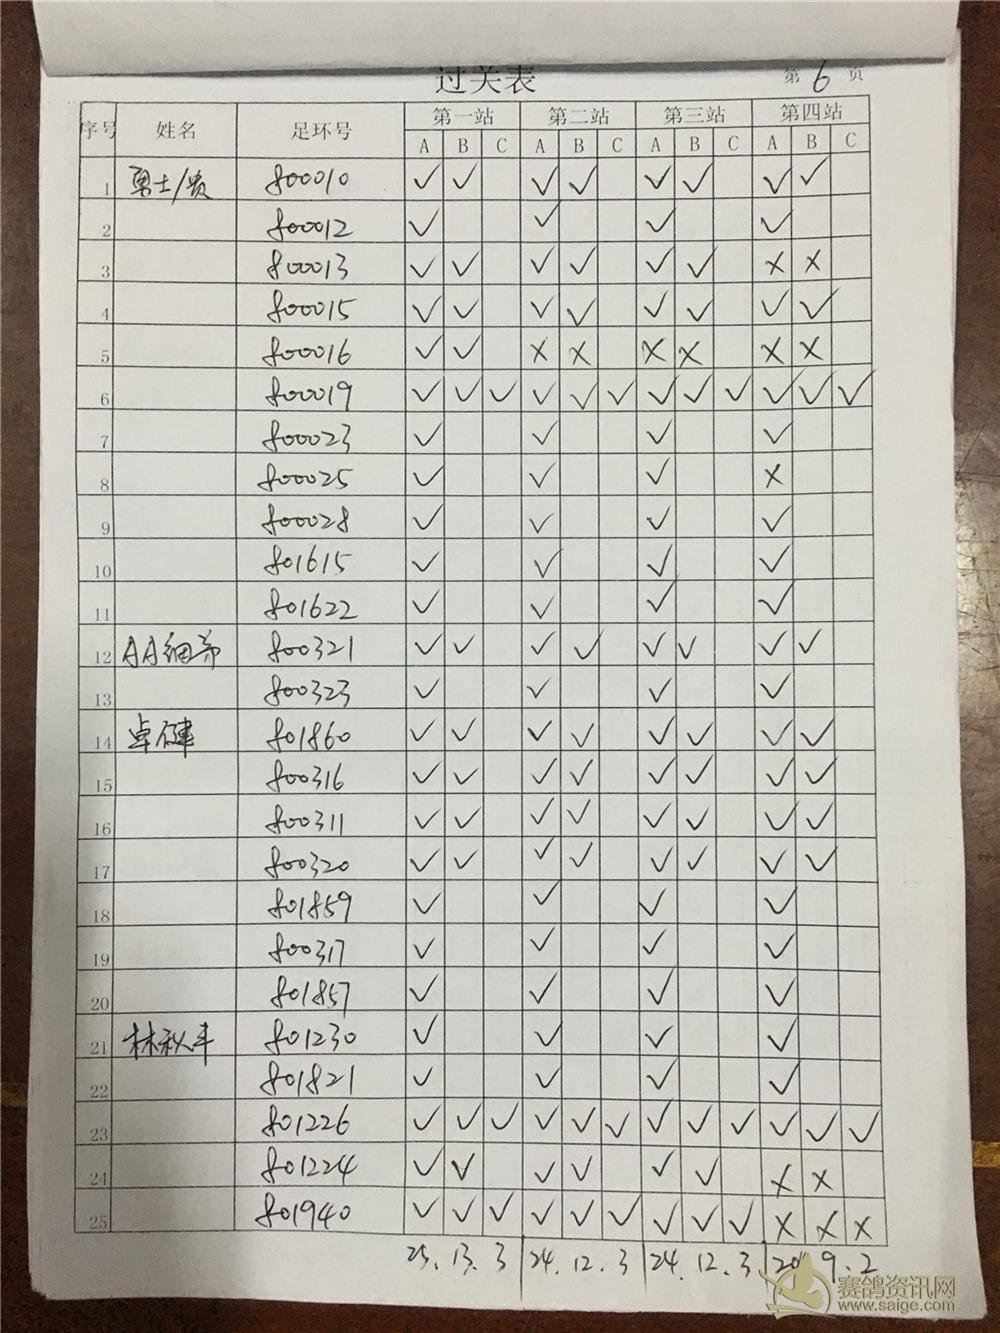 过关表 第 6 页
序号 姓名 足环号 第一站 第二站 第三站 第四站
A B C A B C A B C A B C
1 勇士/贵 800010 ✓ ✓ ✓ ✓ ✓ ✓ ✓ ✓
2 800012 ✓ ✓ ✓ ✓
3 800013 ✓ ✓ ✓ ✓ ✓ ✓ × ×
4 800015 ✓ ✓ ✓ ✓ ✓ ✓ ✓ ✓
5 800016 ✓ ✓ × × × × × ×
6 800019 ✓ ✓ ✓ ✓ ✓ ✓ ✓ ✓ ✓ ✓ ✓ ✓
7 800023 ✓ ✓ ✓ ✓
8 800025 ✓ ✓ ✓ ×
9 800028 ✓ ✓ ✓ ✓
10 801615 ✓ ✓ ✓ ✓
11 801622 ✓ ✓ ✓ ✓
12 AA细弟 800321 ✓ ✓ ✓ ✓ ✓ ✓ ✓ ✓
13 800323 ✓ ✓ ✓ ✓
14 卓健 801860 ✓ ✓ ✓ ✓ ✓ ✓ ✓ ✓
15 800316 ✓ ✓ ✓ ✓ ✓ ✓ ✓ ✓
16 800311 ✓ ✓ ✓ ✓ ✓ ✓ ✓ ✓
17 800320 ✓ ✓ ✓ ✓ ✓ ✓ ✓ ✓
18 801859 ✓ ✓ ✓ ✓
19 800317 ✓ ✓ ✓ ✓
20 801857 ✓ ✓ ✓ ✓
21 林秋丰 801230 ✓ ✓ ✓ ✓
22 801821 ✓ ✓ ✓ ✓
23 801226 ✓ ✓ ✓ ✓ ✓ ✓ ✓ ✓ ✓ ✓ ✓ ✓
24 801224 ✓ ✓ ✓ ✓ ✓ ✓ × ×
25 801940 ✓ ✓ ✓ ✓ ✓ ✓ ✓ ✓ ✓ × × ×
25. 13. 3 24. 12. 3 24. 12. 3 20 9. 2
赛鸽资讯网
www.saige.com